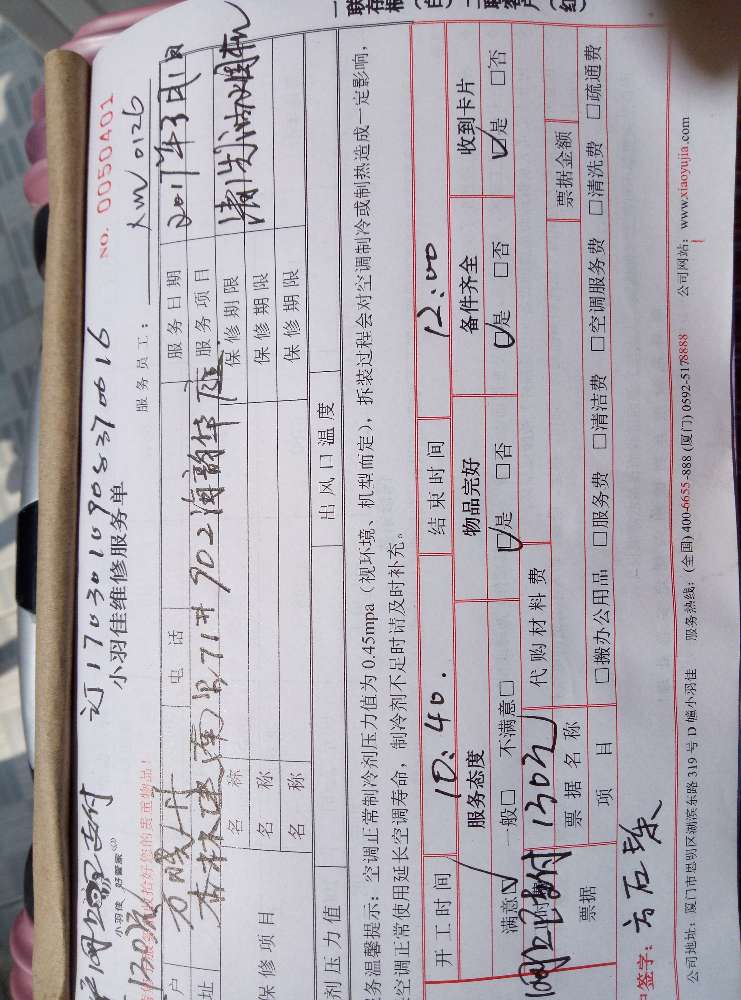 NO. 0050401
订1703010908370016
小羽佳维修服务单
服务员工: XM0126
小羽佳 好管家
130元
户 电 话 服务日期 2017年3月1日
址 杏林 南 71# 902 海韵华 服务项目 清洗油烟机
保修项目 名 称 保修期限
名 称 保修期限
名 称 保修期限
剂压力值 出风口温度
务温馨提示: 空调正常制冷剂压力值为0.45mpa(视环境、机型而定), 拆装过程会对空调制冷或制热造成一定影响,
空调正常使用延长空调寿命, 制冷剂不足时请及时补充。
开工时间 10:40. 结束时间 12:00
服务态度 物品完好 备件齐全 收到卡片
满意☑ 一般□ 不满意□ ☑是 □否 ☑是 □否 ☑是 □否
网上已付 130元 代购材料费
票据 票据名称 票据金额
项 目 □搬办公用品 □服务费 □清洁费 □空调服务费 □清洗费 □疏通费
签字:
公司地址: 厦门市思明区湖滨东路319号D幢小羽佳 服务热线: (全国)400-6655-888 (厦门)0592-5178888 公司网站: www.xiaoyujia.com